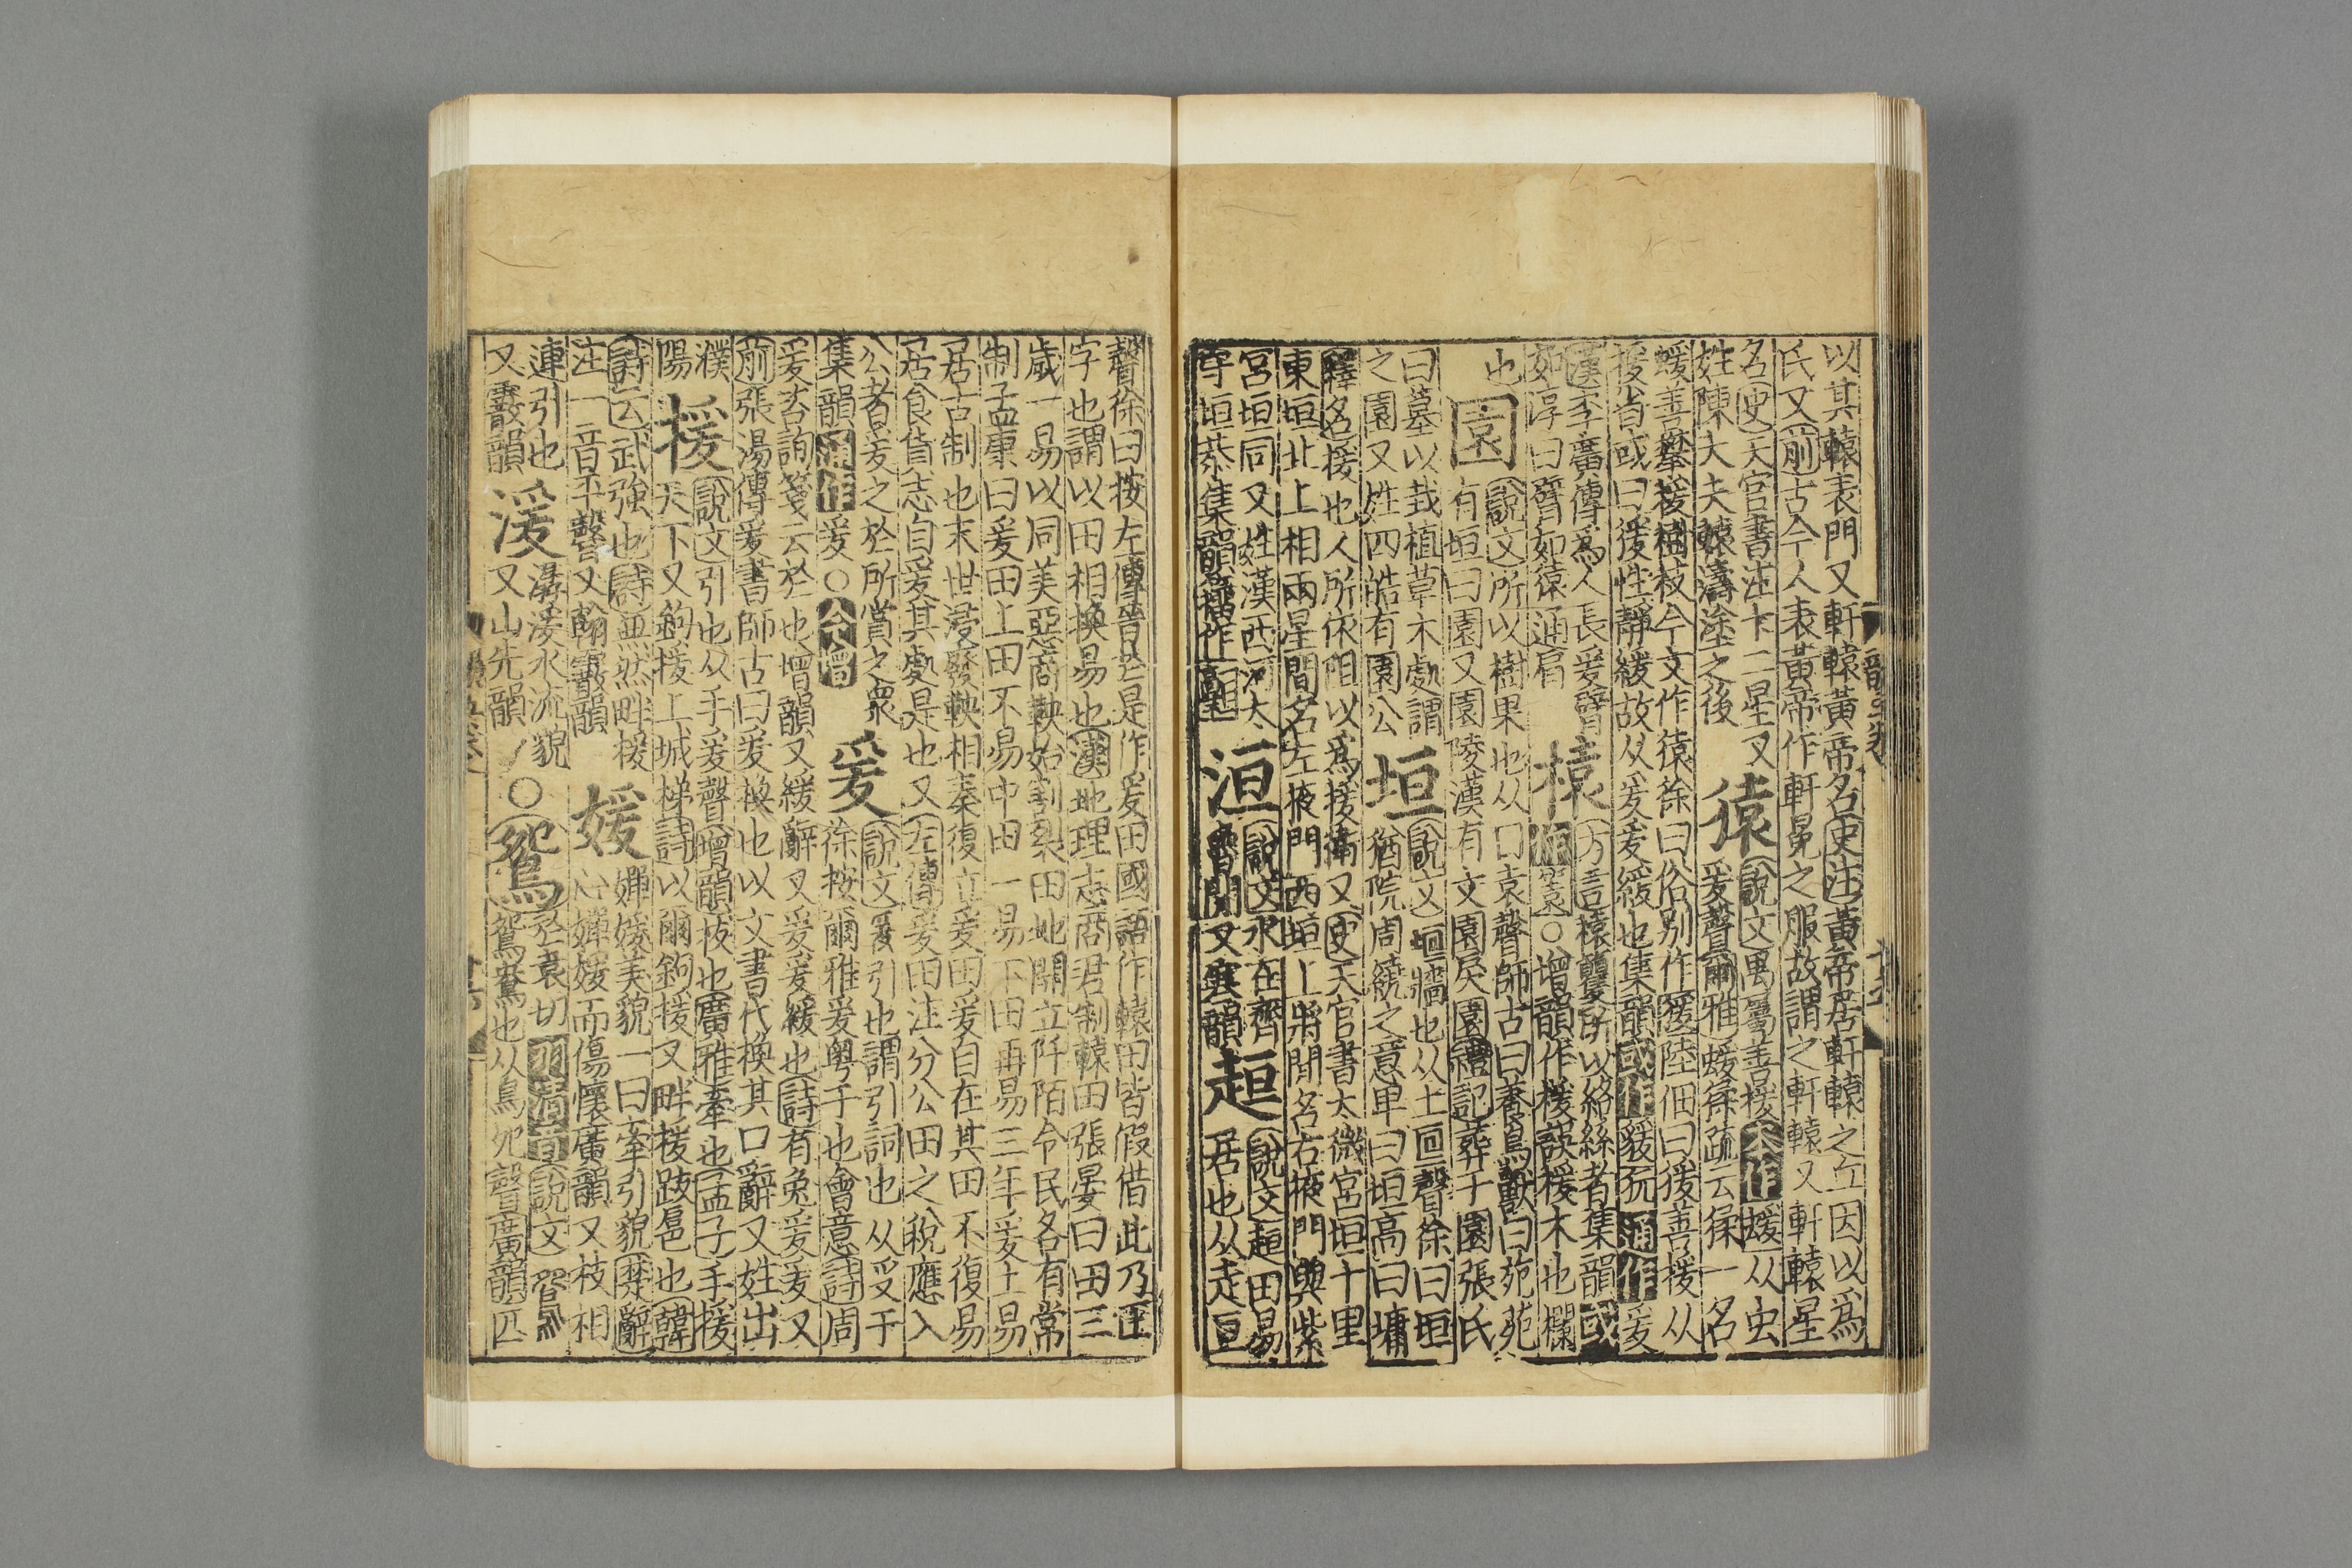 以其轅表門又軒轅黃帝名史注黃帝居軒轅之丘因以爲
氏又前古今人表黃帝作軒冕之服故謂之軒轅又軒轅星
名史天官書注卞二星又
姓陳大夫轅濤塗之後
猿
說文禺屬善援本作蝯从虫
爰聲爾雅蝯猱疏云猱一名
蝯善攀援樹枝今文作猿徐曰俗別作猨陸佃曰猨善援从
援省或曰猨性靜緩故从爰爰緩也集韻或作猨猿通作爰
漢李廣傳爲人長爰臂
如淳曰臂如猿通肩
榬
方言榬籰所以絡絲者集韻或
作䈠○增韻作楥誤楥木也欄
也
園
說文所以樹果也从囗袁聲師古曰養鳥獸曰苑苑
有垣曰園又園陵漢有文園戾園禮記葬于園張氏
曰墓以栽植草木處謂
之園又姓四皓有園公
垣
說文垣牆也从土亘聲徐曰垣
猶院周繞之意卑曰垣高曰墉
釋名援也人所依阻以爲援衛又史天官書太微宮垣十里
東垣北上相兩星間名左掖門西垣上將間名右掖門與紫
宮垣同又姓漢西河太
守垣恭集韻籒作𩫫
洹
說文水在齊
魯閒又寒韻
趄
說文趄田易
居也从走亘
聲徐曰按左傳晉於是作爰田國語作轅田皆假借此乃正
字也謂以田相換易也漢地理志商君制轅田張晏曰田三
歲一易以同美惡商鞅始割裂田地開立阡陌令民各有常
制孟康曰爰田上田不易中田一易下田再易三年爰土易
居古制也末世浸廢鞅相秦復立爰田爰自在其田不復易
居食貨志自爰其處是也又左傳爰田注分公田之稅應入
公者爰之於所賞之衆
集韻通作爰○今增
爰
說文爰引也謂引詞也从𠬪于
徐按爾雅爰粵于也會意詩周
爰咨詢箋云於也增韻又緩辭又爰爰緩也詩有兔爰爰又
前張湯傳爰書師古曰爰換也以文書代換其口辭又姓出
濮
陽
援
說文引也从手爰聲增韻拔也廣雅牽也孟子手援
天下又鉤援上城梯詩以爾鉤援又畔援跋扈也韓
詩云武強也詩無然畔援
注一音平聲又翰霰韻
媛
嬋媛美貌一曰牽引貌楚辭
心嬋媛而傷懷廣韻又枝相
連引也
又霰韻
湲
潺湲水流貌
又山先韻
○
鴛
於袁切羽濁音說文鴛
鴛鴦也从鳥夗聲廣韻匹